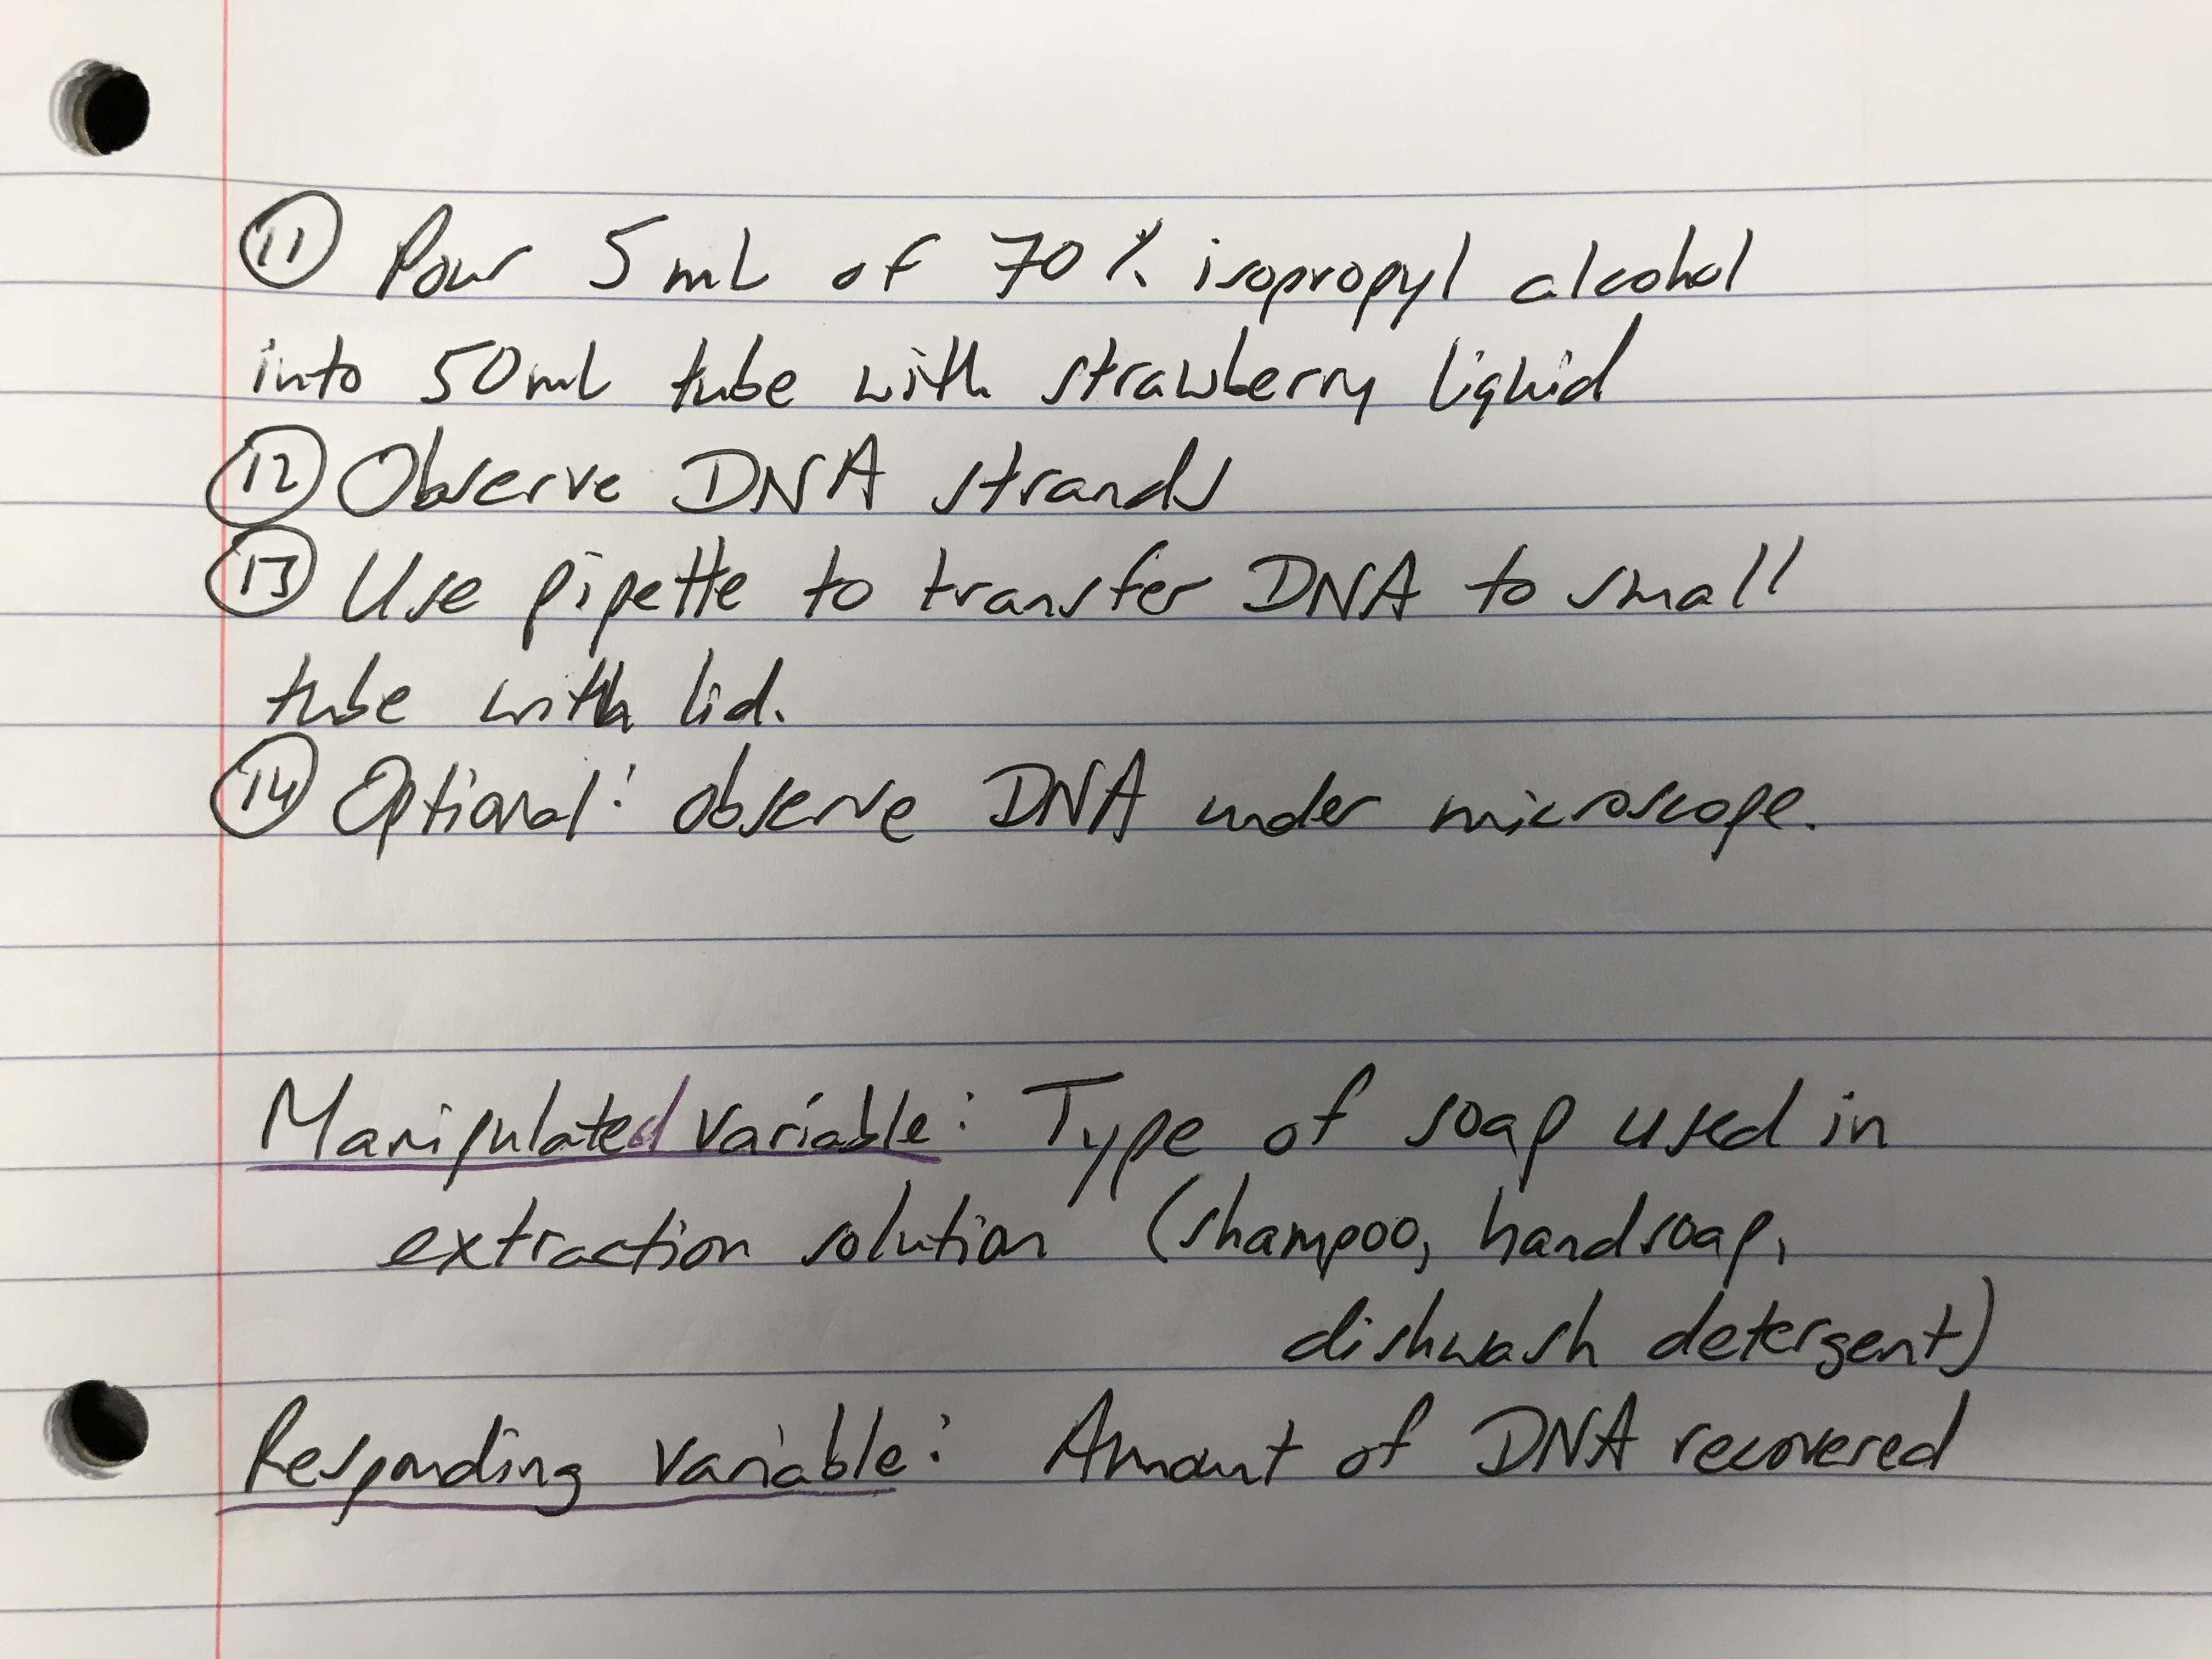 11 Pour 5mL of 70% isopropyl alcohol
into 50mL tube with strawberry liquid
12 Observe DNA strands
13 Use pipette to transfer DNA to small
tube with lid.
14 Optional: observe DNA under microscope.
Manipulated variable: Type of soap used in
extraction solution (shampoo, handsoap,
dishwash detergent)
Responding variable: Amount of DNA recovered